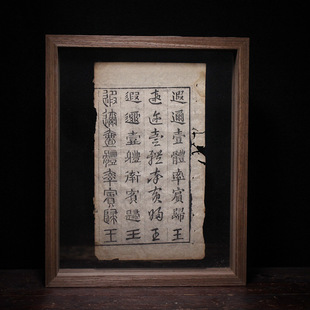 遐邇壹體率賓歸王
遐邇壹體率賓歸王
遐邇壹體率賓歸王
遐邇壹體率賓歸王